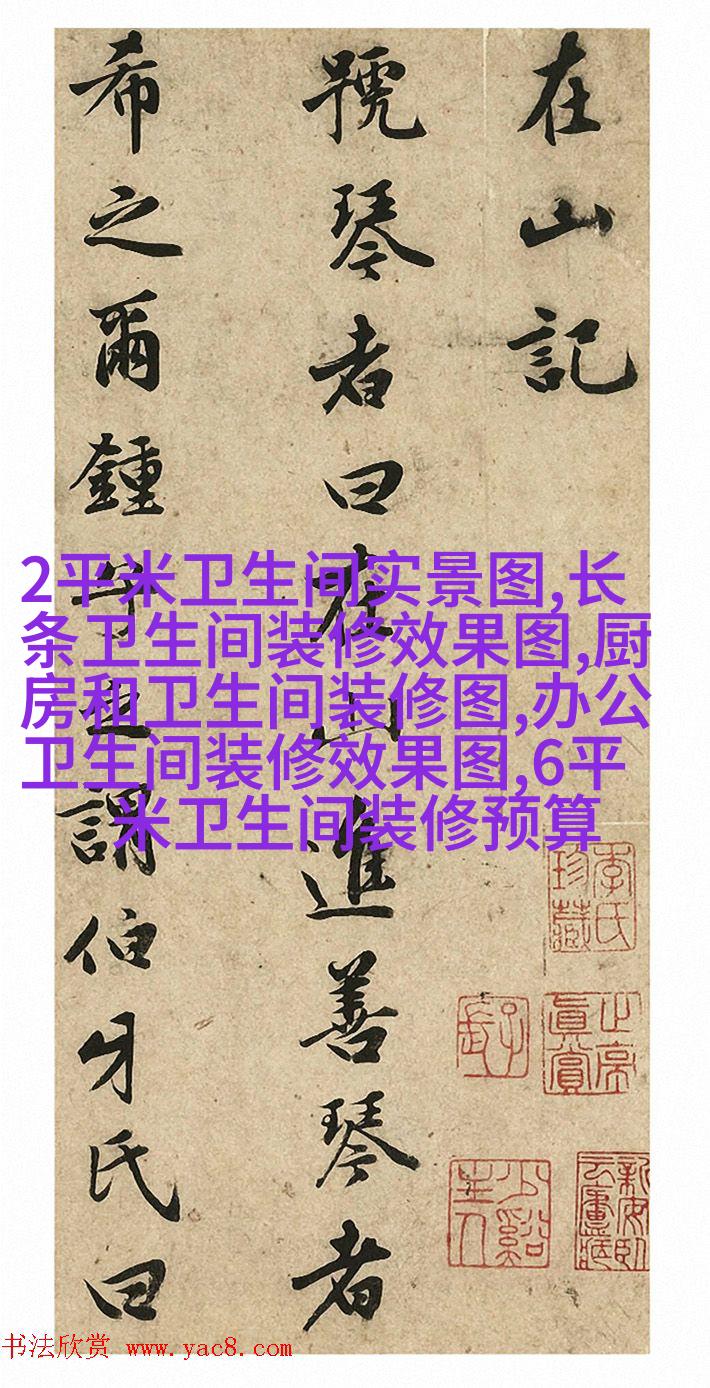 在山記
號琴者曰在山進善琴者
希之爾鍾子謂伯牙氏曰
2平米卫生间实景图,长
条卫生间装修效果图,厨
房和卫生间装修图,办公
卫生间装修效果图,6平
米卫生间装修预算
珍藏
真賞
少谿主人
书法欣赏 www.yac8.com